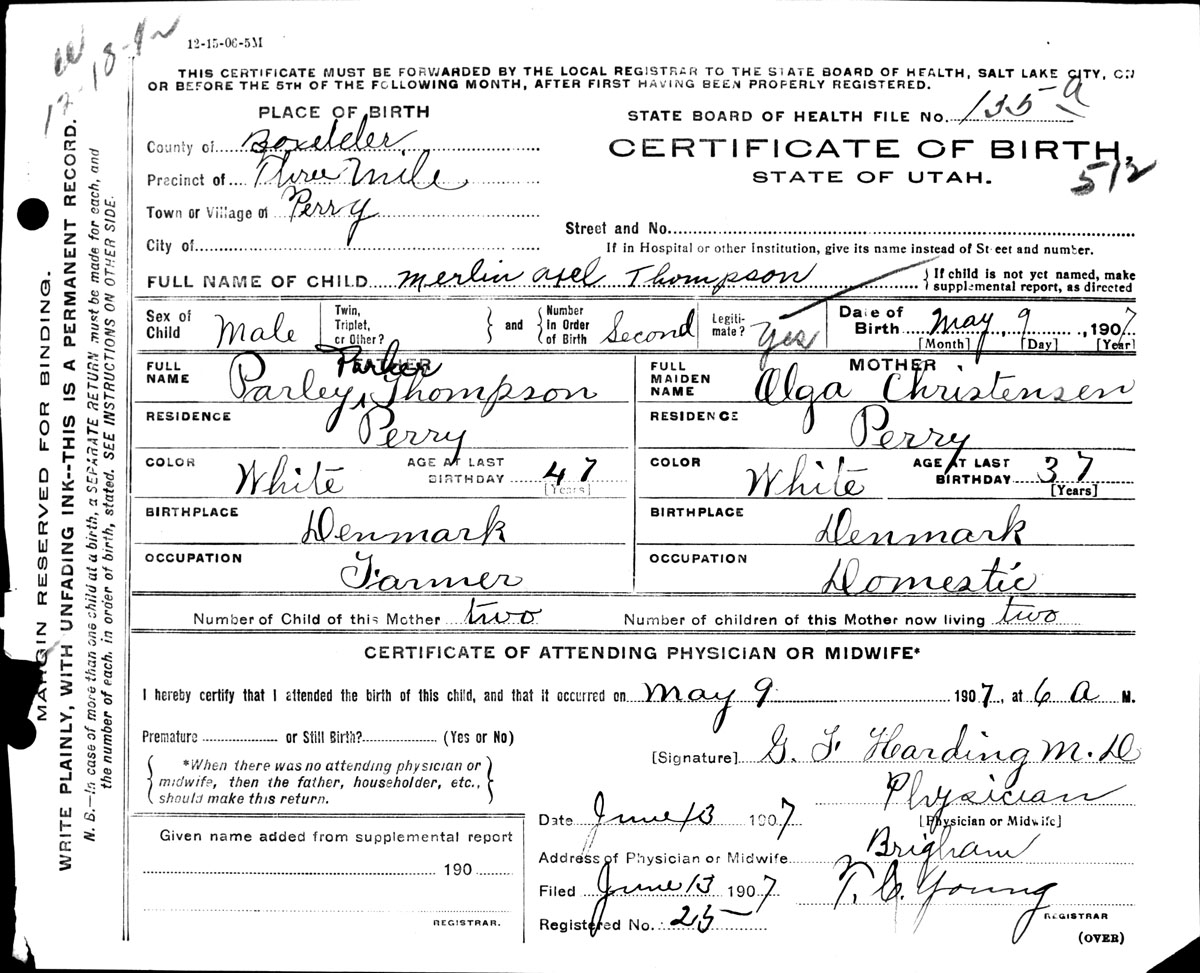 12-18-42
12-15-06-5M
THIS CERTIFICATE MUST BE FORWARDED BY THE LOCAL REGISTRAR TO THE STATE BOARD OF HEALTH, SALT LAKE CITY, ON
OR BEFORE THE 5TH OF THE FOLLOWING MONTH, AFTER FIRST HAVING BEEN PROPERLY REGISTERED.
PLACE OF BIRTH
STATE BOARD OF HEALTH FILE No. 135 a
County of Boxelder
CERTIFICATE OF BIRTH
512
Precinct of Three Mile
STATE OF UTAH.
Town or Village of Perry
Street and No.
City of
If in Hospital or other Institution, give its name instead of Street and number.
FULL NAME OF CHILD Merlin Axel Thompson } If child is not yet named, make
supplemental report, as directed
Sex of Child Male Twin, Triplet, or Other? } and { Number In Order of Birth Second Legiti-mate? Yes Date of Birth May 9, 1907
[Month] [Day] [Year]
FATHER
FULL NAME Parley Parker Thompson
MOTHER
FULL MAIDEN NAME Olga Christensen
RESIDENCE Perry RESIDENCE Perry
COLOR White AGE AT LAST BIRTHDAY 47 [Years] COLOR White AGE AT LAST BIRTHDAY 37 [Years]
BIRTHPLACE Denmark BIRTHPLACE Denmark
OCCUPATION Farmer OCCUPATION Domestic
Number of Child of this Mother two Number of children of this Mother now living two
CERTIFICATE OF ATTENDING PHYSICIAN OR MIDWIFE*
I hereby certify that I attended the birth of this child, and that it occurred on May 9 1907, at 6 A M.
Premature or Still Birth? (Yes or No)
[Signature] G. F Harding M. D
{ *When there was no attending physician or
midwife, then the father, householder, etc.,
should make this return. }
Physician
[Physician or Midwife]
Date June 13 1907
Given name added from supplemental report
190
REGISTRAR.
Address of Physician or Midwife Brigham
Filed June 13 1907 T. C. Young
REGISTRAR
Registered No. 25
(OVER)
MARGIN RESERVED FOR BINDING.
WRITE PLAINLY, WITH UNFADING INK--THIS IS A PERMANENT RECORD.
N. B.—In case of more than one child at a birth, a SEPARATE RETURN must be made for each, and
the number of each, in order of birth, stated. SEE INSTRUCTIONS ON OTHER SIDE.